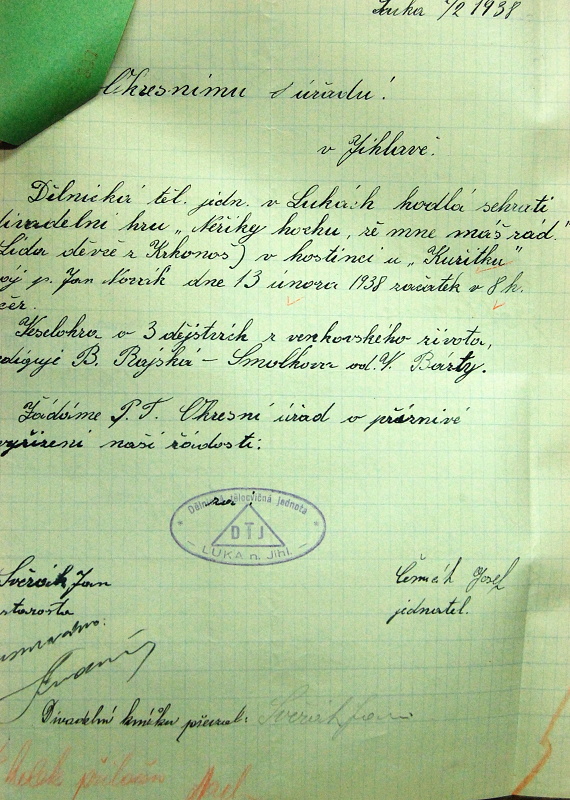 Luka 7/2 1938
Okresnímu úřadu!
v Jihlavě.
Dělnická těl. jedn. v Lukách hodlá sehráti
divadelní hru „Neříky hochu, že mne máš rád."
Lída děvče z Krkonoš) v hostinci u „Kuřítku"
p. Jan Novák dne 13 února 1938 začátek v 8 h.
več.
Veselohra o 3 dějstvích z venkovského života,
B. Rajská – Smolíkova od. V. Bárty.
Žádáme P. T. Okresní úřad o příznivé
vyřízení naší žádosti.
za :
Dělnická tělocvičná jednota
DTJ
LUKA n. Jihl.
Svěrák Jan
starosta
Josef
jednatel.
Divadelní knížku převzal: Svěrák Jan
Kolek přiložen